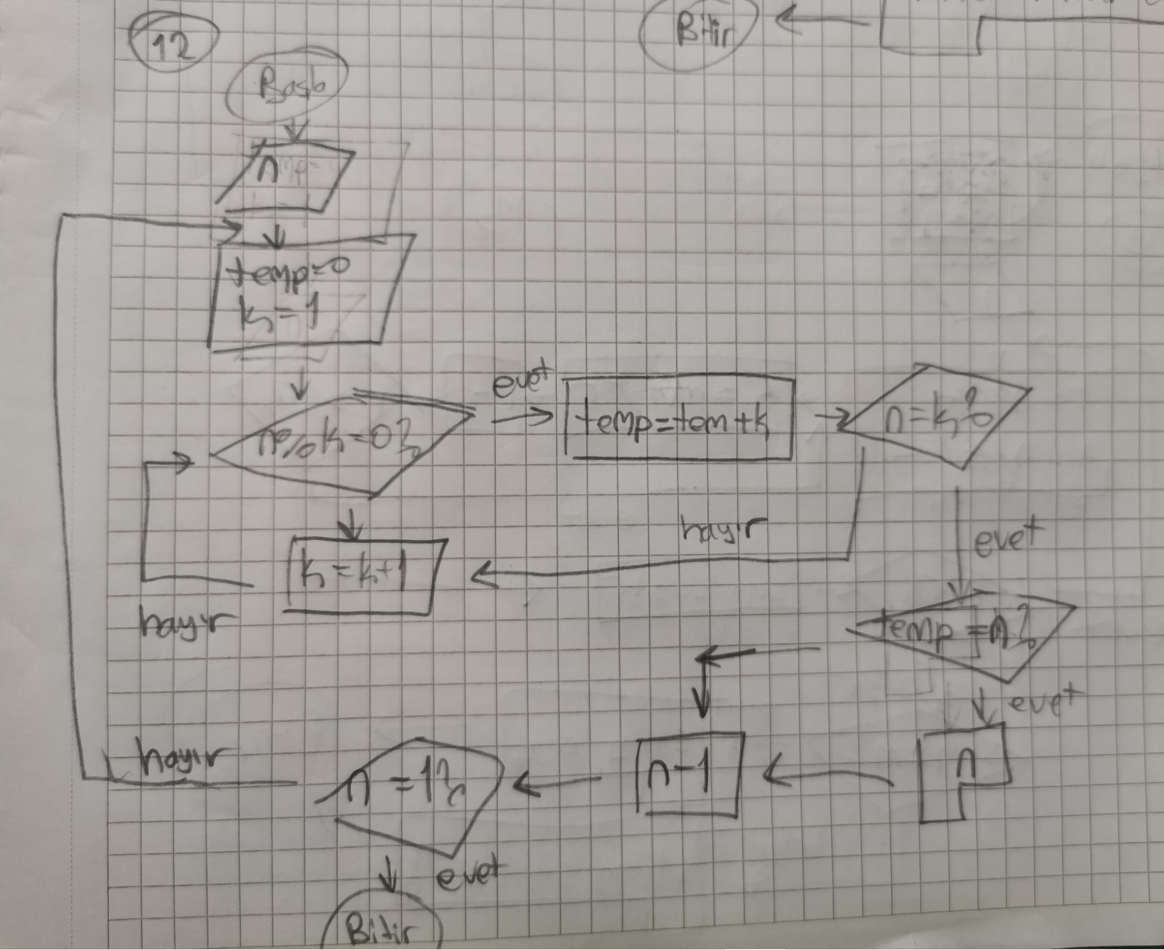 12
Bitir
Başla
n
temp=0
k=1
n%k=0?
evet
temp=tem+k
n=k?
hayır
evet
k=k+1
hayır
temp=n?
evet
n
n-1
n=1?
hayır
evet
Bitir